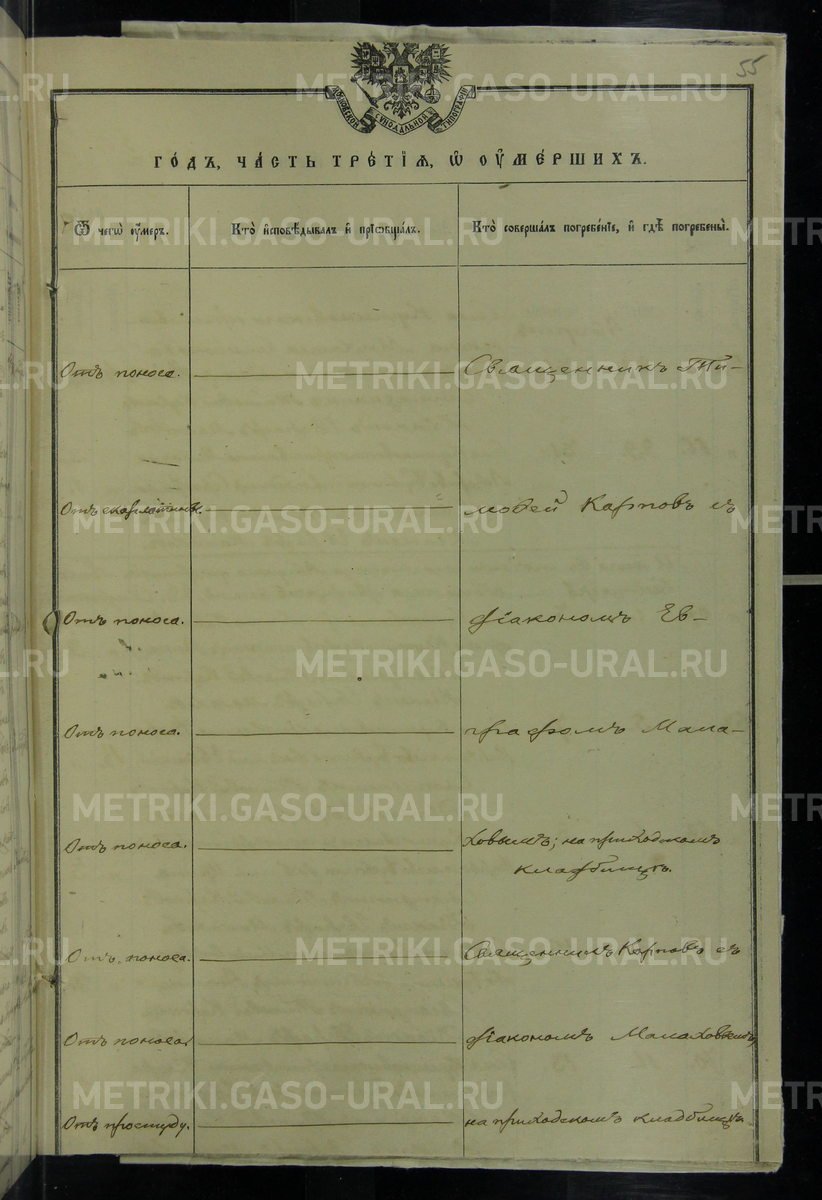 55
МОСКОВСКОЙ СѴНОДАЛЬНОЙ ТИПОГРАФІИ
ГО́ДЪ, ЧА́СТЬ ТРЕ́ТІѦ, Ѡ҆ ОУ҆МЕ́РШИХЪ.
Ѿ чегѡ̀ оу҆́меръ.
Кто̀ и҆сповѣ́дывалъ и҆ прїѡбща́лъ.
Кто̀ соверша́лъ погребе́нїе, и҆ гдѣ̀ погребены̀.
Отъ поноса.
Священникъ Ти-
Отъ скарлатины.
моѳей Карповъ съ
Отъ поноса.
діакономъ Ев-
Отъ поноса.
графомъ Мала-
Отъ поноса.
ховымъ; на приходскомъ
кладбищѣ.
Отъ поноса.
Священникъ Карповъ съ
Отъ поноса.
діакономъ Малаховымъ,
Отъ простуды.
на приходскомъ кладбищѣ
METRIKI.GASO-URAL.RU